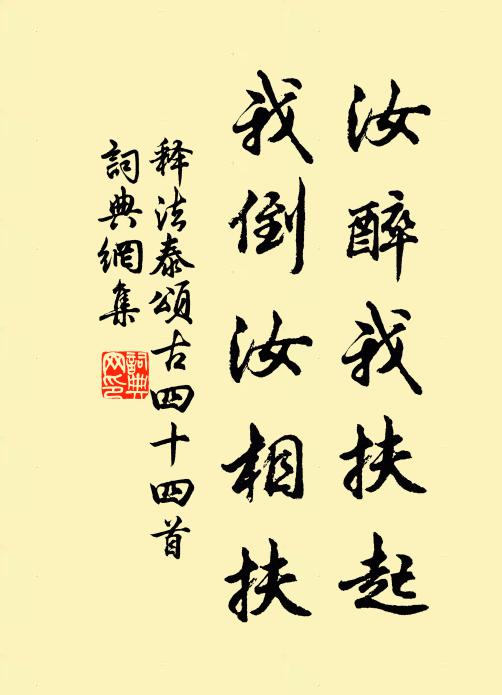 汝醉我扶起
我倒汝相扶
释法泰頌古四十四首
詞典網集
詞典网印